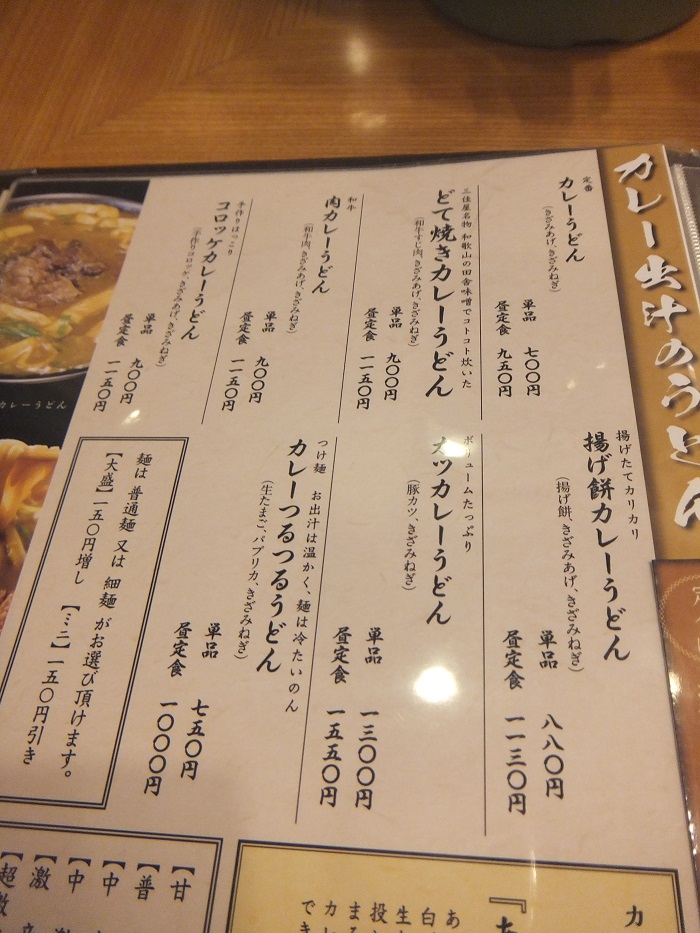 カレー出汁のうどん
定番
カレーうどん
(きざみあげ、きざみねぎ)
単品 七〇〇円
昼定食 九五〇円
三佳屋名物 和歌山の田舎味噌でコトコト炊いた
どて焼きカレーうどん
(和牛すじ肉、きざみあげ、きざみねぎ)
単品 九〇〇円
昼定食 一一五〇円
和牛
肉カレーうどん
(和牛肉、きざみあげ、きざみねぎ)
単品 九〇〇円
昼定食 一一五〇円
手作りほっこり
コロッケカレーうどん
(手作りコロッケ、きざみあげ、きざみねぎ)
単品 九〇〇円
昼定食 一一五〇円
揚げたてカリカリ
揚げ餅カレーうどん
(揚げ餅、きざみあげ、きざみねぎ)
単品 八八〇円
昼定食 一一三〇円
ボリュームたっぷり
カツカレーうどん
(豚カツ、きざみねぎ)
単品 一三〇〇円
昼定食 一五五〇円
つけ麺 お出汁は温かく、麺は冷たいのん
カレーつるつるうどん
(生たまご、パプリカ、きざみねぎ)
単品 七五〇円
昼定食 一〇〇〇円
麺は 普通麺 又は 細麺 がお選び頂けます。
【大盛】一五〇円増し 【ミニ】一五〇円引き
カレーうどん
カ
『
あ
白
生
投
ま
カレ
でき
【甘
【普
【中
【中
【激
【超激